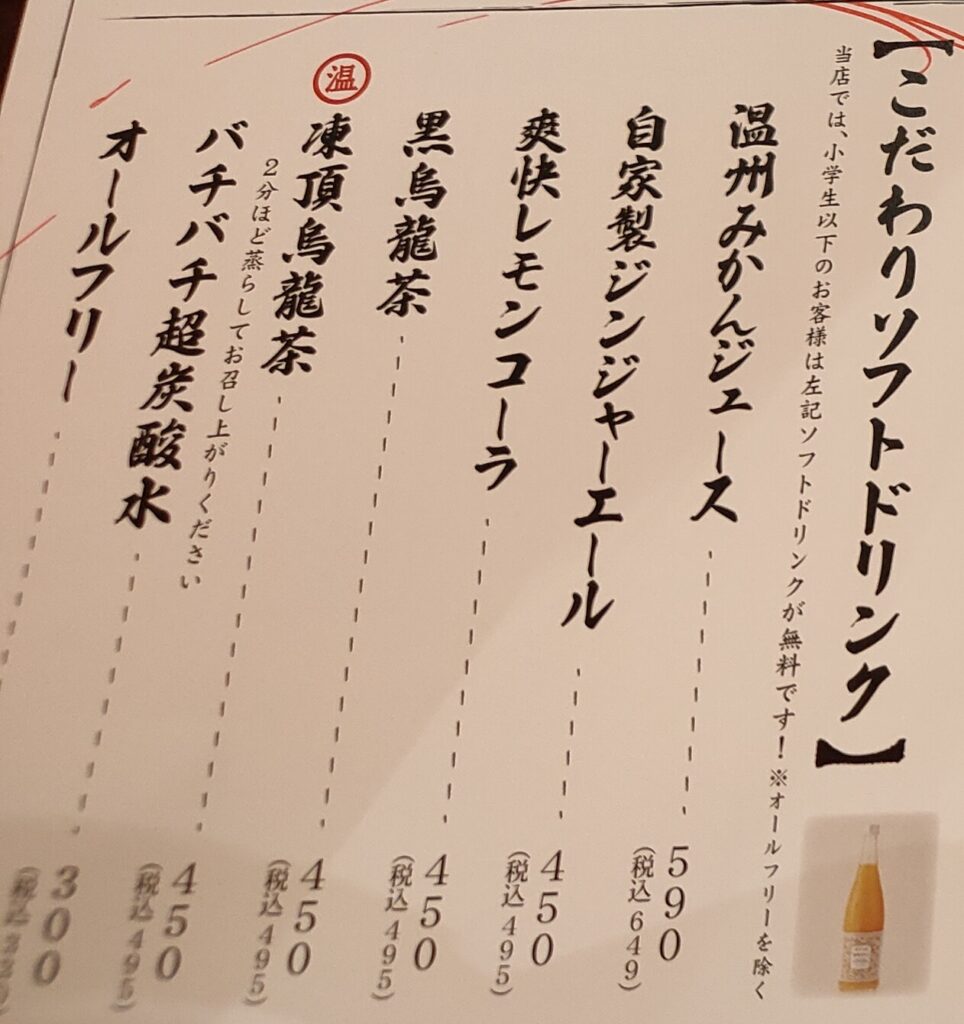 【こだわりソフトドリンク】
当店では、小学生以下のお客様は左記ソフトドリンクが無料です！※オールフリーを除く
温州みかんジュース 590
(税込649)
自家製ジンジャーエール 450
(税込495)
爽快レモンコーラ 450
(税込495)
黒烏龍茶 450
(税込495)
温
凍頂烏龍茶 450
(税込495)
2分ほど蒸らしてお召し上がりください
バチバチ超炭酸水 300
(税込330)
オールフリー